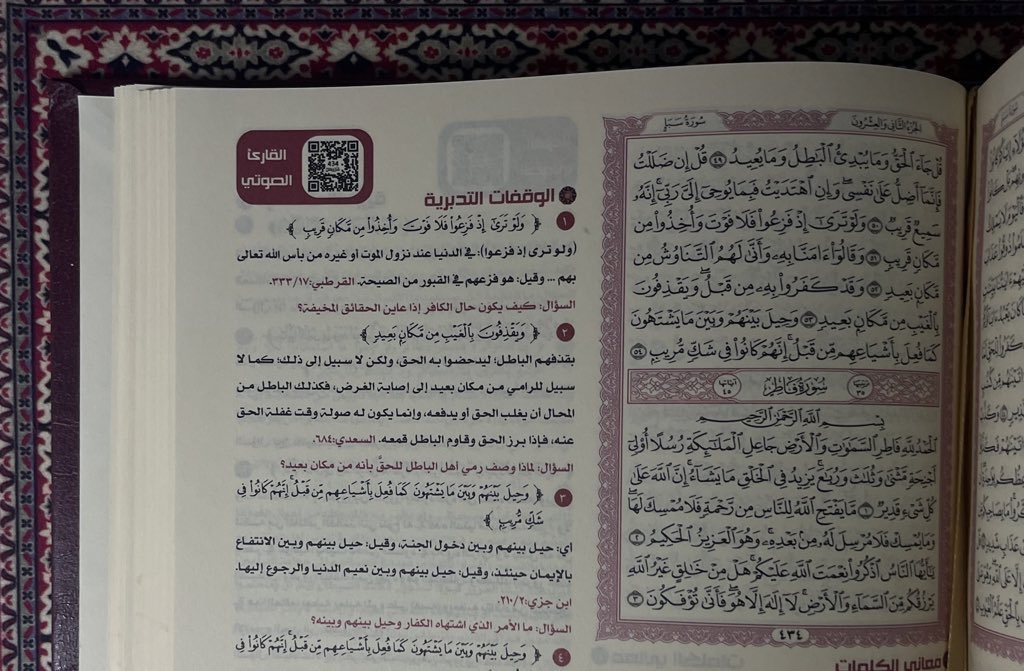 الجزء الثاني والعشرون
سورة سبإ
قُلْ جَآءَ ٱلْحَقُّ وَمَا يُبْدِئُ ٱلْبَٰطِلُ وَمَا يُعِيدُ ٤٩ قُلْ إِن ضَلَلْتُ
فَإِنَّمَآ أَضِلُّ عَلَىٰ نَفْسِى وَإِنِ ٱهْتَدَيْتُ فَبِمَا يُوحِىٓ إِلَىَّ رَبِّىٓ إِنَّهُۥ
سَمِيعٌ قَرِيبٌ ٥٠ وَلَوْ تَرَىٰٓ إِذْ فَزِعُوا۟ فَلَا فَوْتَ وَأُخِذُوا۟ مِن
مَّكَانٍ قَرِيبٍ ٥١ وَقَالُوٓا۟ ءَامَنَّا بِهِۦ وَأَنَّىٰ لَهُمُ ٱلتَّنَاوُشُ مِن
مَّكَانٍۭ بَعِيدٍ ٥٢ وَقَدْ كَفَرُوا۟ بِهِۦ مِن قَبْلُ وَيَقْذِفُونَ
بِٱلْغَيْبِ مِن مَّكَانٍۭ بَعِيدٍ ٥٣ وَحِيلَ بَيْنَهُمْ وَبَيْنَ مَا يَشْتَهُونَ
كَمَا فُعِلَ بِأَشْيَاعِهِم مِّن قَبْلُ إِنَّهُمْ كَانُوا۟ فِى شَكٍّ مُّرِيبٍۭ ٥٤
ترتيبها ٣٥ سُورَةُ فَاطِرٍ آياتها ٤٥
بِسْمِ ٱللَّهِ ٱلرَّحْمَٰنِ ٱلرَّحِيمِ
ٱلْحَمْدُ لِلَّهِ فَاطِرِ ٱلسَّمَٰوَٰتِ وَٱلْأَرْضِ جَاعِلِ ٱلْمَلَٰٓئِكَةِ رُسُلًا أُو۟لِىٓ
أَجْنِحَةٍ مَّثْنَىٰ وَثُلَٰثَ وَرُبَٰعَ يَزِيدُ فِى ٱلْخَلْقِ مَا يَشَآءُ إِنَّ ٱللَّهَ عَلَىٰ
كُلِّ شَىْءٍ قَدِيرٌ ١ مَّا يَفْتَحِ ٱللَّهُ لِلنَّاسِ مِن رَّحْمَةٍ فَلَا مُمْسِكَ لَهَا
وَمَا يُمْسِكْ فَلَا مُرْسِلَ لَهُۥ مِنۢ بَعْدِهِۦ وَهُوَ ٱلْعَزِيزُ ٱلْحَكِيمُ ٢
يَٰٓأَيُّهَا ٱلنَّاسُ ٱذْكُرُوا۟ نِعْمَتَ ٱللَّهِ عَلَيْكُمْ هَلْ مِنْ خَٰلِقٍ غَيْرُ ٱللَّهِ
يَرْزُقُكُم مِّنَ ٱلسَّمَآءِ وَٱلْأَرْضِ لَآ إِلَٰهَ إِلَّا هُوَ فَأَنَّىٰ تُؤْفَكُونَ ٣
٤٣٤
معاني الكلمات
القارئ
الصوتي
434
الوقفات التدبرية
١ ﴿ وَلَوْ تَرَىٰٓ إِذْ فَزِعُوا۟ فَلَا فَوْتَ وَأُخِذُوا۟ مِن مَّكَانٍ قَرِيبٍ ﴾
(ولو ترى إذ فزعوا): في الدنيا عند نزول الموت أو غيره من بأس الله تعالى
بهم ... وقيل: هو فزعهم في القبور من الصيحة. القرطبي: ٣٣٣/١٧.
السؤال: كيف يكون حال الكافر إذا عاين الحقائق المخيفة؟
٢ ﴿ وَيَقْذِفُونَ بِٱلْغَيْبِ مِن مَّكَانٍۭ بَعِيدٍ ﴾
بقذفهم الباطل؛ ليدحضوا به الحق، ولكن لا سبيل إلى ذلك؛ كما لا
سبيل للرامي من مكان بعيد إلى إصابة الغرض، فكذلك الباطل من
المحال أن يغلب الحق أو يدفعه، وإنما يكون له صولة وقت غفلة الحق
عنه، فإذا برز الحق وقاوم الباطل قمعه. السعدي: ٦٨٤.
السؤال: لماذا وصف رمي أهل الباطل للحقّ بأنه من مكان بعيد؟
٣ ﴿ وَحِيلَ بَيْنَهُمْ وَبَيْنَ مَا يَشْتَهُونَ كَمَا فُعِلَ بِأَشْيَاعِهِم مِّن قَبْلُ إِنَّهُمْ كَانُوا۟ فِى
شَكٍّ مُّرِيبٍۭ ﴾
أي: حيل بينهم وبين دخول الجنة، وقيل: حيل بينهم وبين الانتفاع
بالإيمان حينئذ، وقيل: حيل بينهم وبين نعيم الدنيا والرجوع إليها.
ابن جزي: ٢١٠/٢.
السؤال: ما الأمر الذي اشتهاه الكفار وحيل بينهم وبينه؟
٤ ﴿ وَحِيلَ بَيْنَهُمْ وَبَيْنَ مَا يَشْتَهُونَ كَمَا فُعِلَ بِأَشْيَاعِهِم مِّن قَبْلُ إِنَّهُمْ كَانُوا۟ فِى